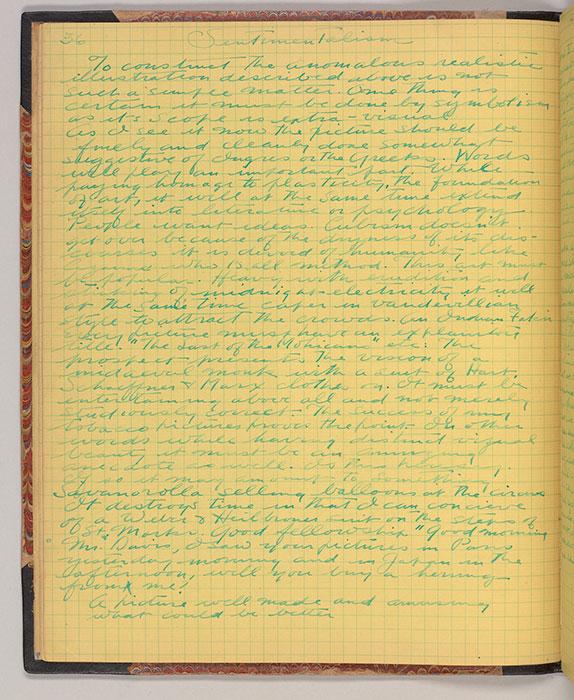 36 Sentimentalism
To construct the anomalous realistic
illustration described above is not
such a simple matter. One thing is
certain it must be done by symbolism
as it's scope is extra-visual
As I see it now the picture should be
finely and cleanly done somewhat
suggestive of Ingres or the Greeks. Words
will play an important part. While
paying homage to plasticity, the foundation
of art, it will at the same time extend
itself into literature or psychology.
People want ideas. Cubism doesn't
get over because of the dryness of its dis-
courses it is devoid of humanity like
who is all method. This art must
be popular. Heavy with erudition and
of midnight electricity it will
at the same time caper in vaudevillian
style to attract the crowds. An Indian
every picture must have an explanatory
title. "The Last of the Mohicans" etc. The
prospect presents the vision of a
mediaeval monk with a suit of Hart
Schaffner & Marx clothes on. It must be
entertaining above all and not merely
studiously correct. The success of my
tobacco pictures proves the point. In other
words while having distinct visual
beauty it must be an amusing
anecdote as well. Is this
If so it may amount to something.
Savanarolla selling balloons at the circus
It destroys time in that I can concieve
of a Weber & Heilbroner suit on the steps of
St. Marks. Good fellowship "Good morning
Mr. Davis, I saw your pictures in Paris
yesterday morning and in Japan in the
afternoon, will you buy a herring
from me?
A picture well made and amusing
what could be better